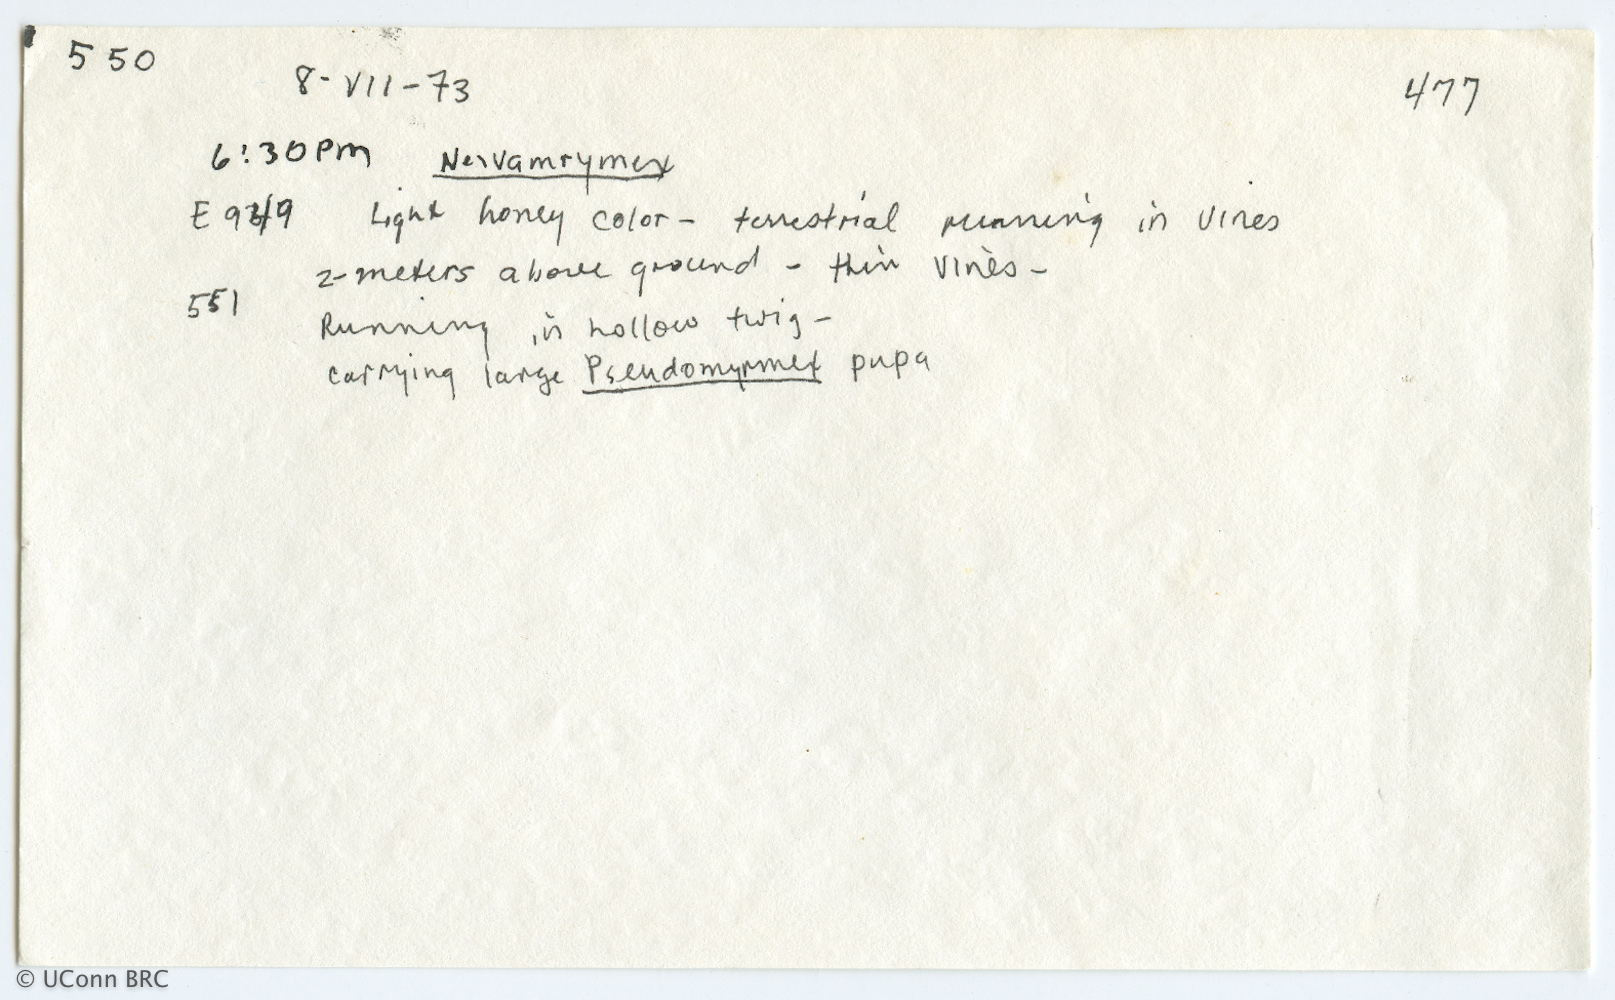 550
8-VII-73
477
6:30PM Neivamrymex
E 9 /9 Light honey color - terrestrial running in vines
2-meters above ground - thin vines -
551
Running in hollow twig -
carrying large Pseudomyrmex pupa
© UConn BRC